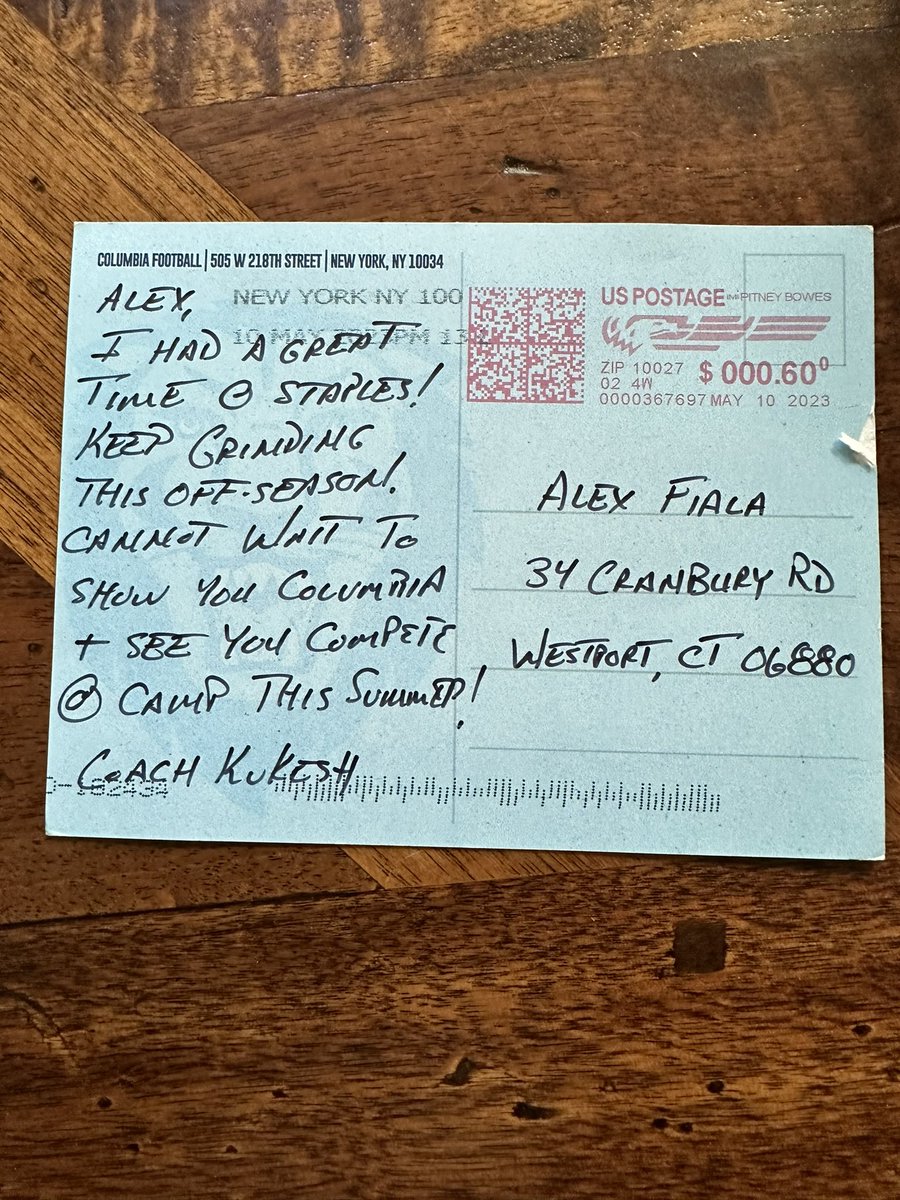 COLUMBIA FOOTBALL | 505 W 218TH STREET | NEW YORK, NY 10034
ALEX,
I HAD A GREAT
TIME @ STAPLES!
KEEP GRINDING
THIS OFF-SEASON!
CANNOT WAIT TO
SHOW YOU COLUMBIA
+ SEE YOU COMPETE
@ CAMP THIS SUMMER!
COACH KUKESH
NEW YORK NY 100
10 MAY 2023PM 13
US POSTAGE IMI PITNEY BOWES
ZIP 10027 $ 000.60⁰
02 4W
0000367697 MAY 10 2023
ALEX FIALA
34 CRANBURY RD
WESTPORT, CT 06880